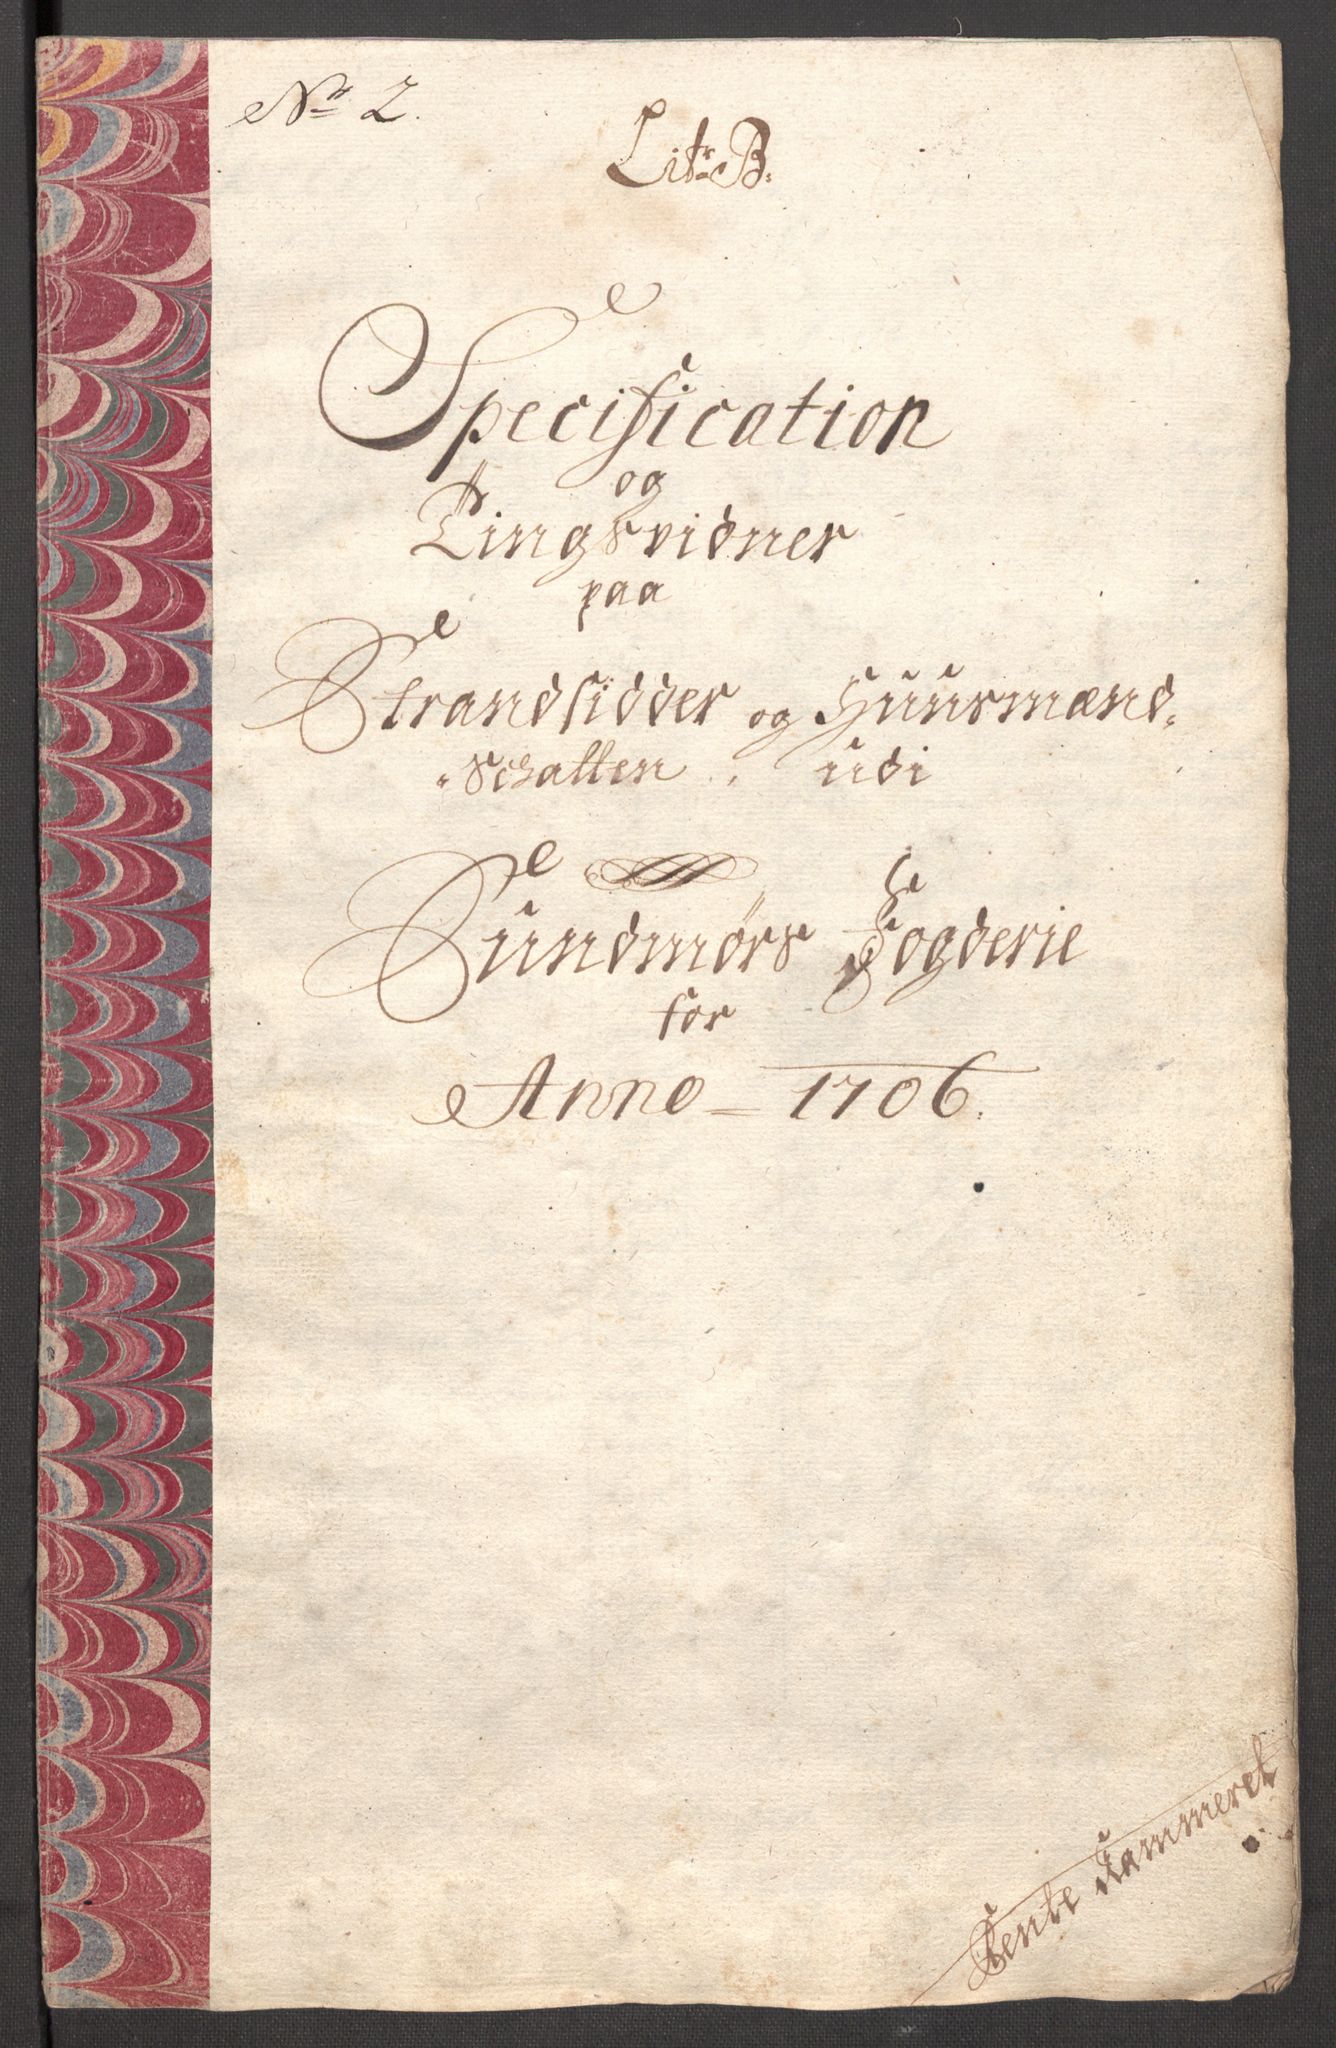 No 2.
Litr B.
Specification
og
Tingsvidner
paa
Strandsidder og Huusmænd-
Schatten, udi
Sundmørs Fogderie
for
Anno - 1706.
Rente Kammeret